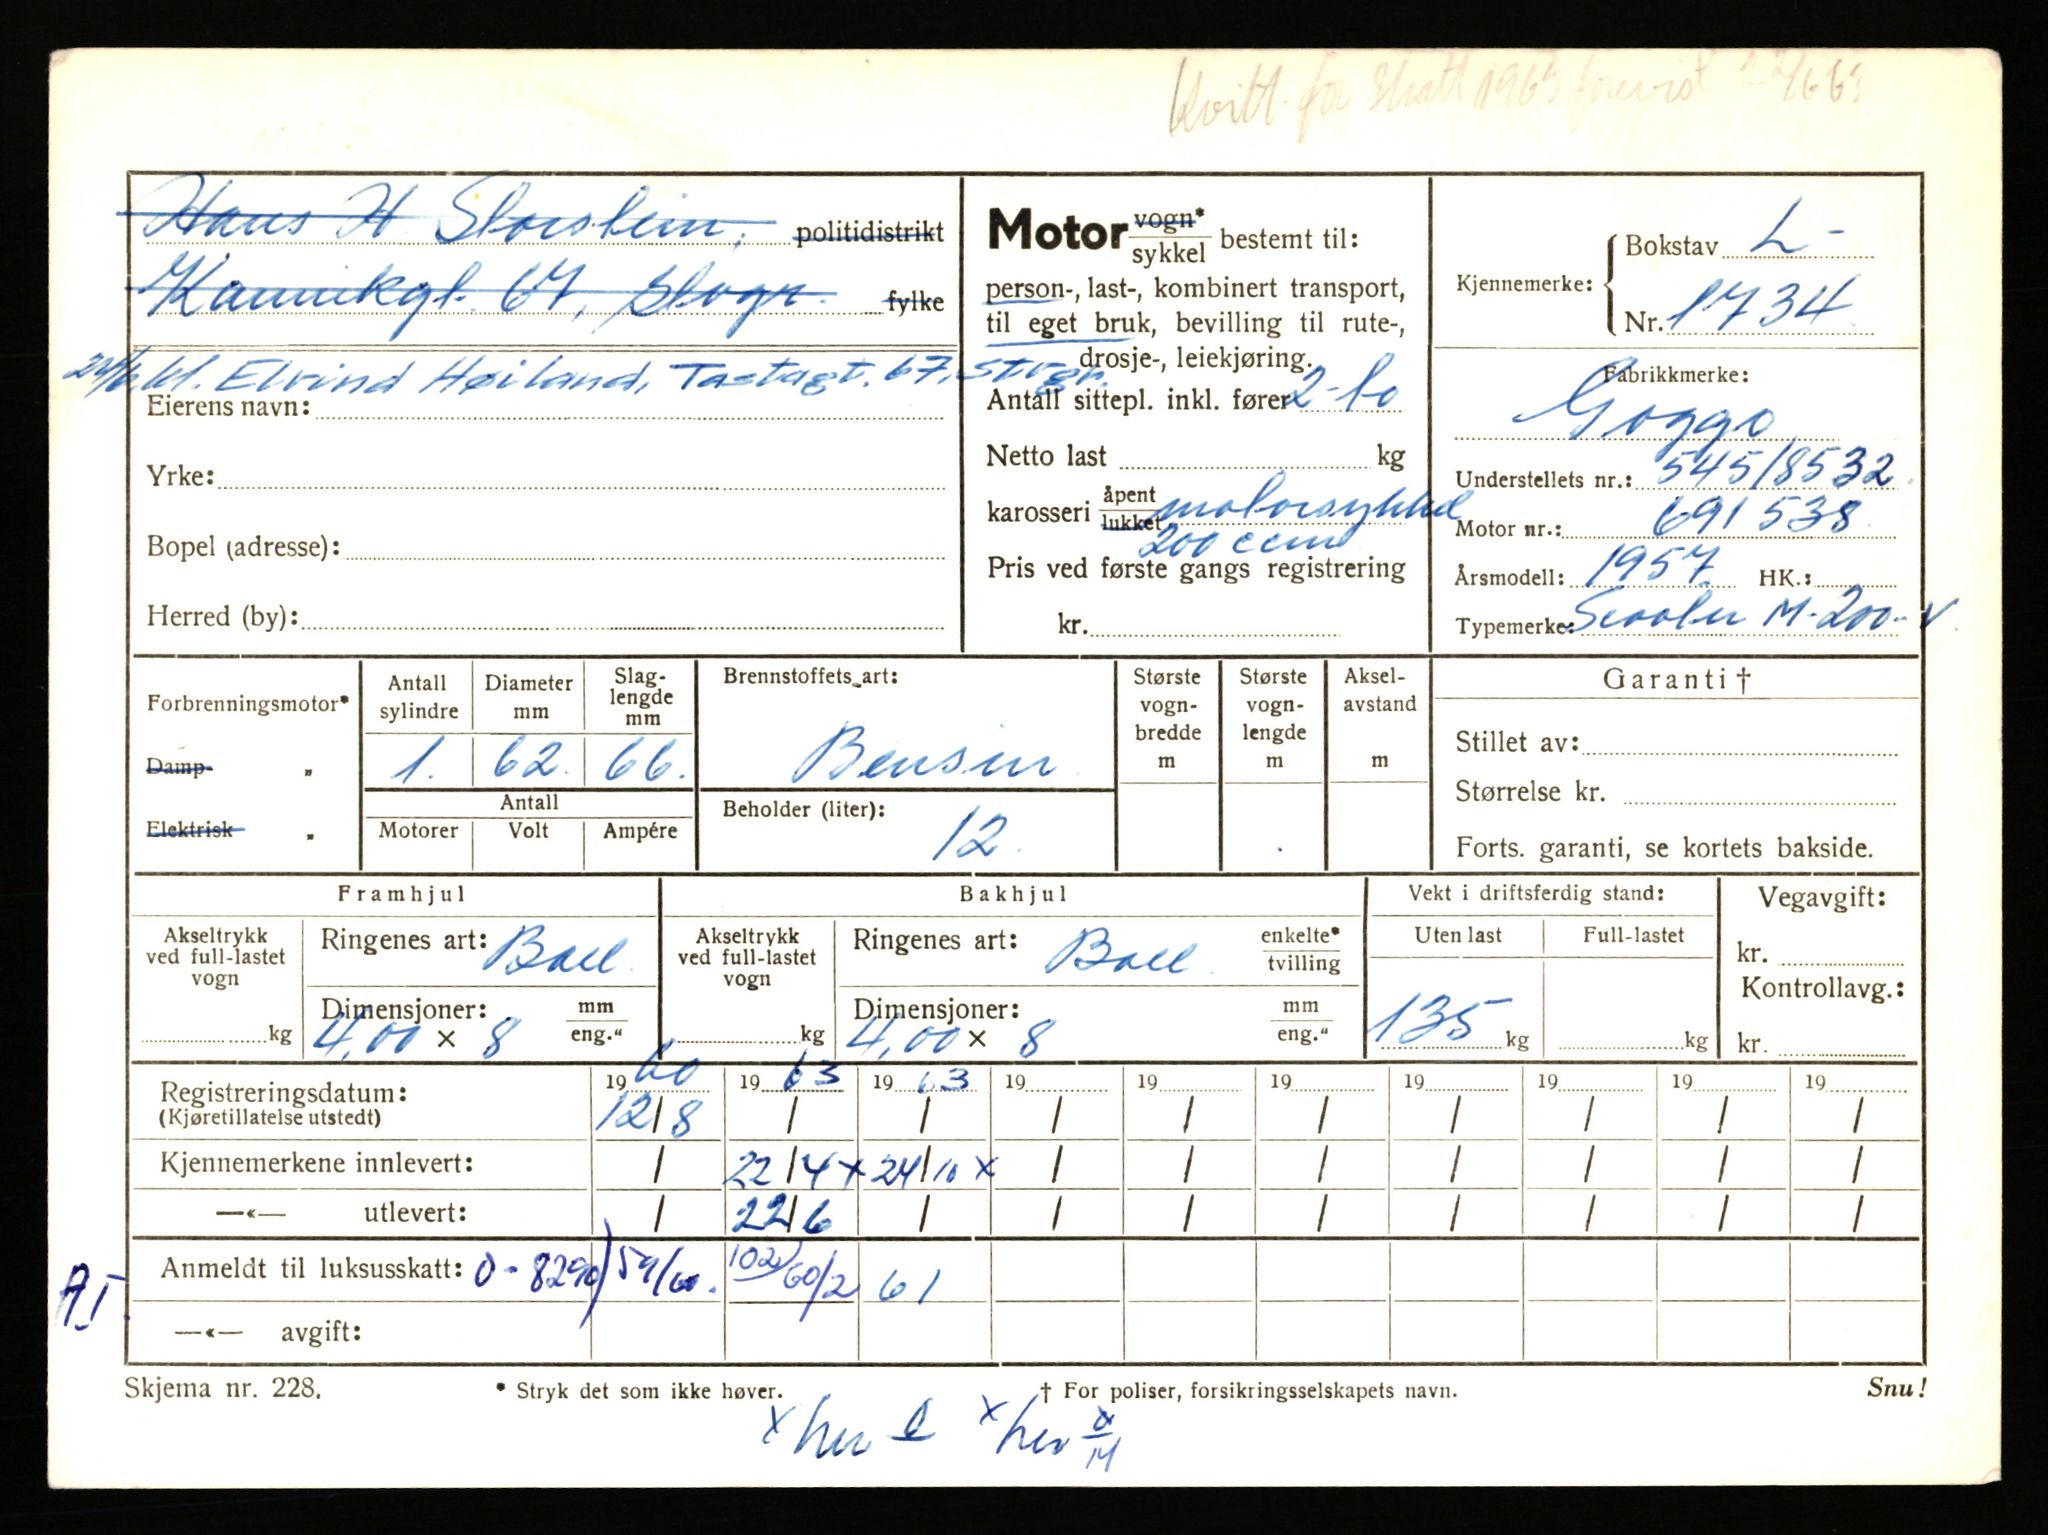 Kvitt. for skatt 1963 forevist 22/6 63
Hans H Storstein, politidistrikt
Kannikgt. 67, Stvgr. fylke
kl. Eivind Høiland, Tastagt. 67, Stvgr.
Eierens navn:
Yrke:
Bopel (adresse):
Herred (by):
Motor vogn* sykkel bestemt til:
person-, last-, kombinert transport,
til eget bruk, bevilling til rute-,
drosje-, leiekjøring.
Antall sittepl. inkl. fører 2-to
Netto last kg
karosseri åpent lukket motorsykkel
200 ccm
Pris ved første gangs registrering
kr.
Kjennemerke: Bokstav L-
Nr. 1734
Fabrikkmerke:
Goggo
Understellets nr.: 545/8532
Motor nr.: 691538
Årsmodell: 1957 HK.:
Typemerke: Scooter M-200-V
Forbrenningsmotor*
Damp- „
Elektrisk „
Antall sylindre Diameter mm Slag-lengde mm
1. 62. 66.
Antall
Motorer Volt Ampére
Brennstoffets art:
Bensin
Beholder (liter):
12
Største vogn-bredde m
Største vogn-lengde m
Aksel-avstand m
Garanti †
Stillet av:
Størrelse kr.
Forts. garanti, se kortets bakside.
Framhjul
Akseltrykk ved full-lastet vogn
kg
Ringenes art: Ball
Dimensjoner: mm eng."
4,00 x 8
Bakhjul
Akseltrykk ved full-lastet vogn
kg
Ringenes art: Ball enkelte* tvilling
Dimensjoner: mm eng."
4,00 x 8
Vekt i driftsferdig stand:
Uten last Full-lastet
135 kg kg
Vegavgift:
kr.
Kontrollavg.:
kr.
Registreringsdatum: 1960 1963 1963 19 19 19 19 19 19 19
(Kjøretillatelse utstedt) 12/8 / / / / / / / / /
Kjennemerkene innlevert: / 22/4 x 24/10 x / / / / / / /
—«— utlevert: / 22/6 / / / / / / / /
Anmeldt til luksusskatt: 0-8290) 59/60. 102/60/2 61
AT
—«— avgift:
Skjema nr. 228. * Stryk det som ikke høver. † For poliser, forsikringsselskapets navn. Snu!
x her x her